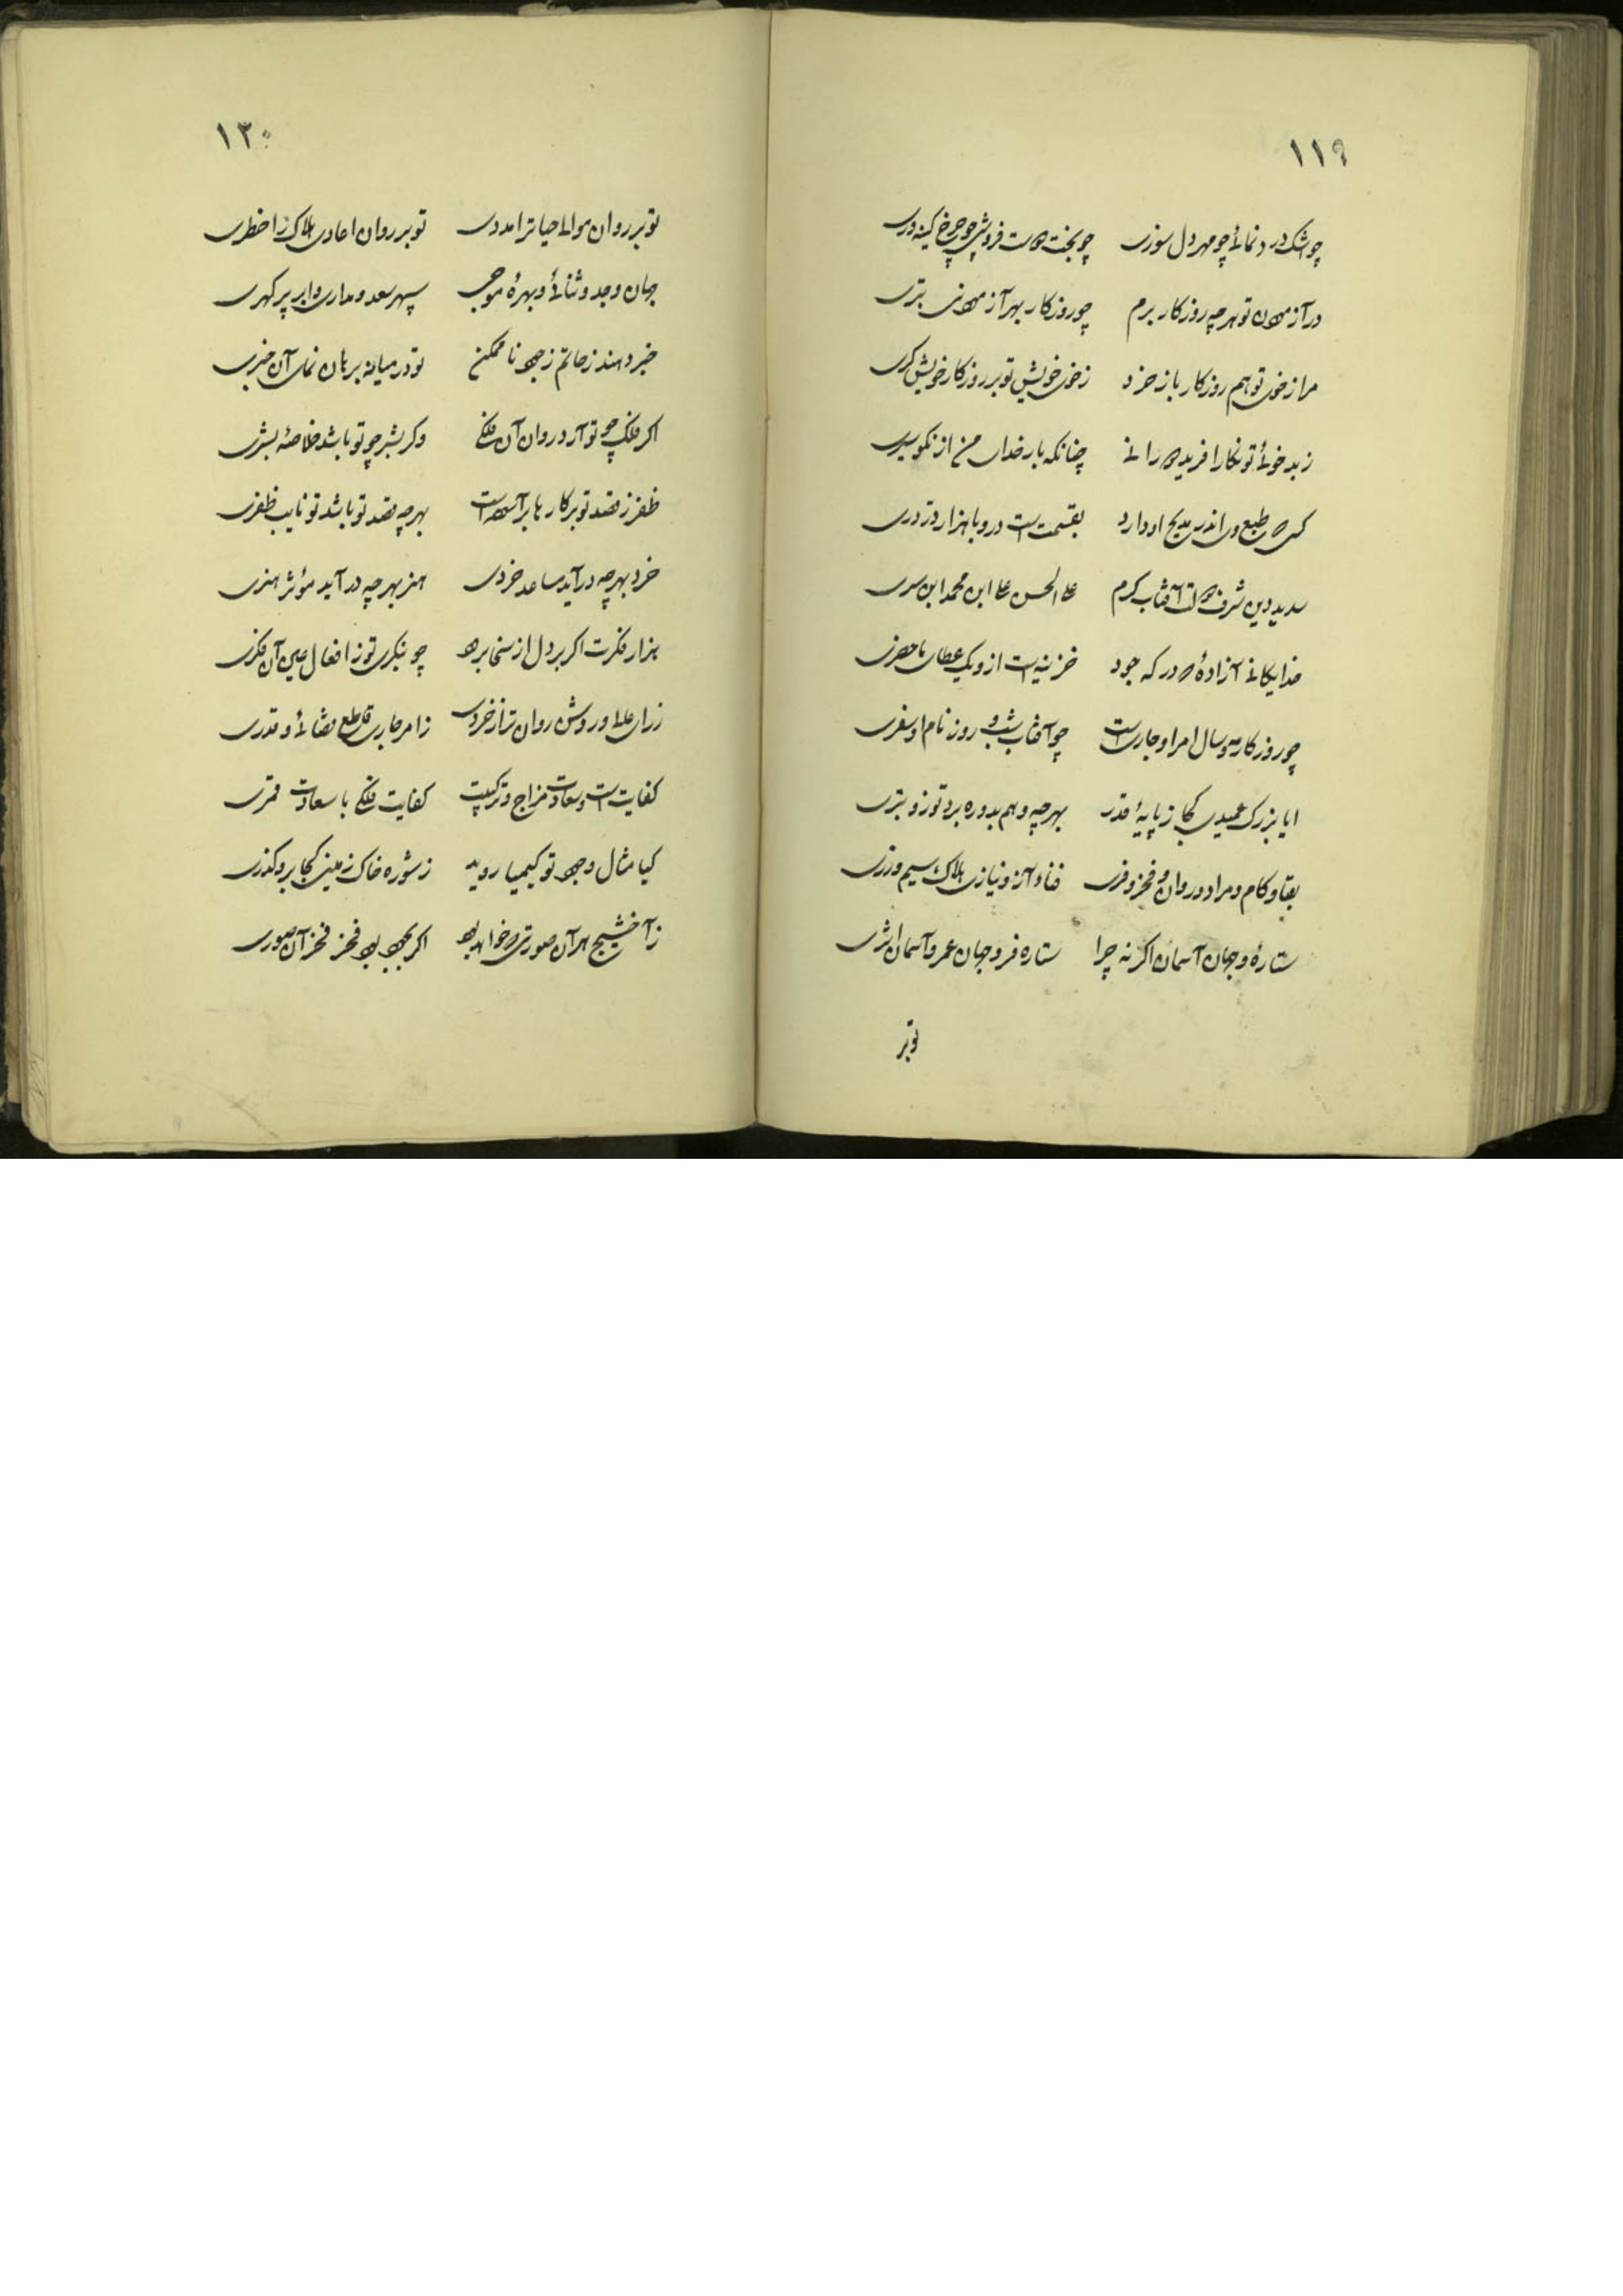 ۱۱۹
چو اشک در د نمائی چو مهر دل سوزی چو بخت دوست فروشی چو چرخ کینه وری
در آزمودن تو هر چه روزگار برم چو روزکار بهر آزمودنی بتری
مرا ز خوی تو هم روزکار باز خرد ز خوی خویش تو بر روزکار خویش کری
ز بد خوئی تو نکارا فریده را نی چنانکه بار خدای من از نکو سیری
کسی که طبع وی اندر مدیح او دارد بقسمت است درو با هزار در دری
سدید دین شرف دولت آفتاب کرم علی الحسن علی ابن محمد ابن سری
خدایکانی آزادهٔ که در که جود خزینه است ازو یک عطای ما حضری
چو روزکار مه و سال امر او جاریست چو آفتاب شب و روز نام او سفری
ایا بزرک عمیدی کجا ز پایهٔ قدر بهر چه وهم بدو ره برد تو زو بتری
بقا و کام و مراد و روان و فخر و فری فناء آز و نیازی هلاک سیم و زری
ستارهٔ و جهان آسمان اکر نه چرا ستاره فر و جهان عمر و آسمان اثری
تو بر
۱۲۰
تو بر روان موالی حیات را مددی تو بر روان اعادی هلاک را خطری
جهان وجد و ثنائی و بهرهٔ موجی سپهر سعد و مداری و ابر پر کهری
خبر دهند ز حاتم ز جود نا ممکن تو در میانه برهان نمای آن خبری
اکر فلک چو تو آرد روان آن فلکی وکر بشر چو تو باشد خلاصهٔ بشری
ظفر ز قصد تو بر کارها بر آسوده است بهر چه قصد تو باشد تو نایب ظفری
خرد بهر چه در آید مساعد خردی هنر بهر چه در آید موثر هنری
هزار فکرت اکر بر دل از سخا برود چو بنکری تو ز افعال عین آن فکری
ز رای عالی و روشن روان تر از خردی ز امر جاری قاطع قضائی و قدری
کفایت است و سعادت مزاج و ترکیبت کفایت فلکی با سعادت قمری
کیا مثال وجود تو کیمیا روید ز شوره خاک زمین کجا برو کذری
ز آخشیج هر آن صورتی که خواهد بود اکر بجود بود فخر فخر آن صوری